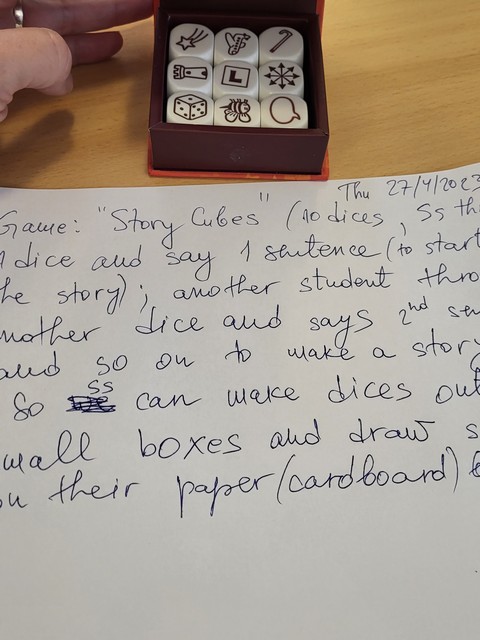 L
Thu 27/4/2023
Game: "Story Cubes" (10 dices, Ss th
1 dice and say 1 sentence (to start
he story); another student thro
nother dice and says 2nd sen
and so on to make a story
So ss can make dices out
mall boxes and draw s
on their paper/(cardboard)